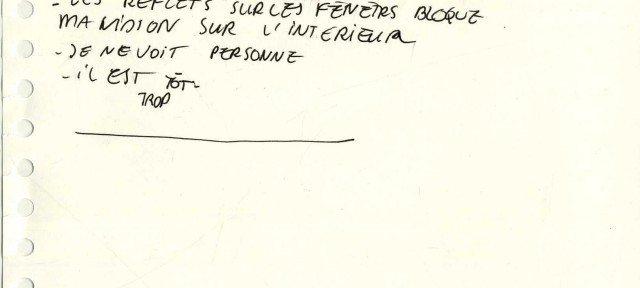 - LES REFLETS SUR LES FENETRS BLOQUE
MA VISION SUR L'INTERIEUR
- JE NE VOIT PERSONNE
- IL EST TÔT
TROP